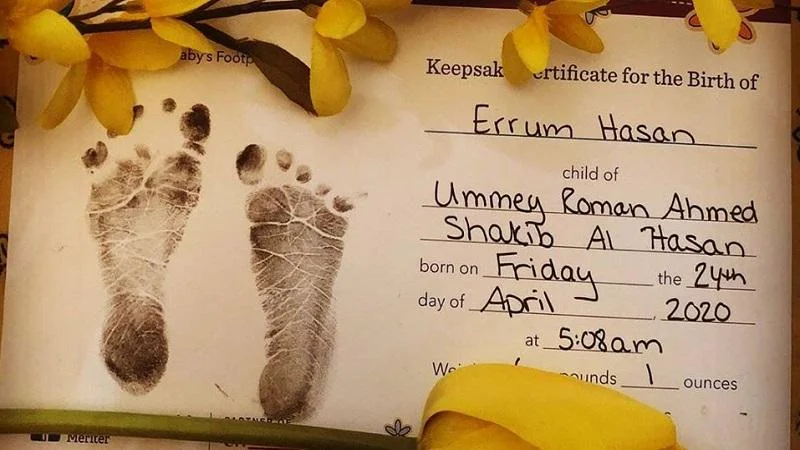 Baby's Footp
Keepsak ertificate for the Birth of
Errum Hasan
child of
Ummey Roman Ahmed
Shakib Al Hasan
born on Friday the 24th
day of April, 2020
at 5:08am
We ounds 1 ounces
Meriter